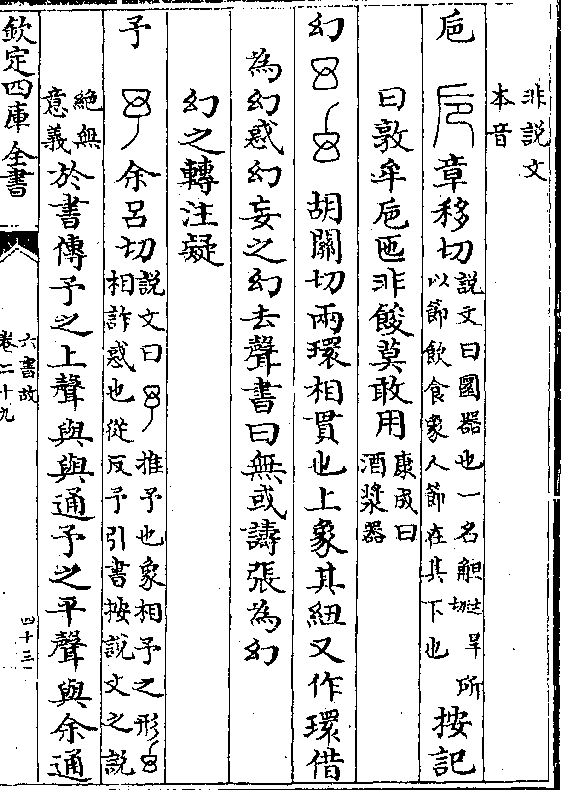 非説文
本音
巵 章移切 説文曰圜器也一名觛徒旱切所
以節飲食象人節在其下也 按記
曰敦牟巵匜非餕莫敢用 康成曰
酒漿器
幻 胡關切兩環相貫也上象其紐又作環借
為幻惑幻妄之幻去聲書曰無或譸張為幻
幻之轉注疑
予 余呂切 説文曰推予也象相予之形
相詐惑也從反予引書按説文之説
絶無
意義 於書傳予之上聲與與通予之平聲與余通
欽定四庫全書
六書故
卷二十九
四十三